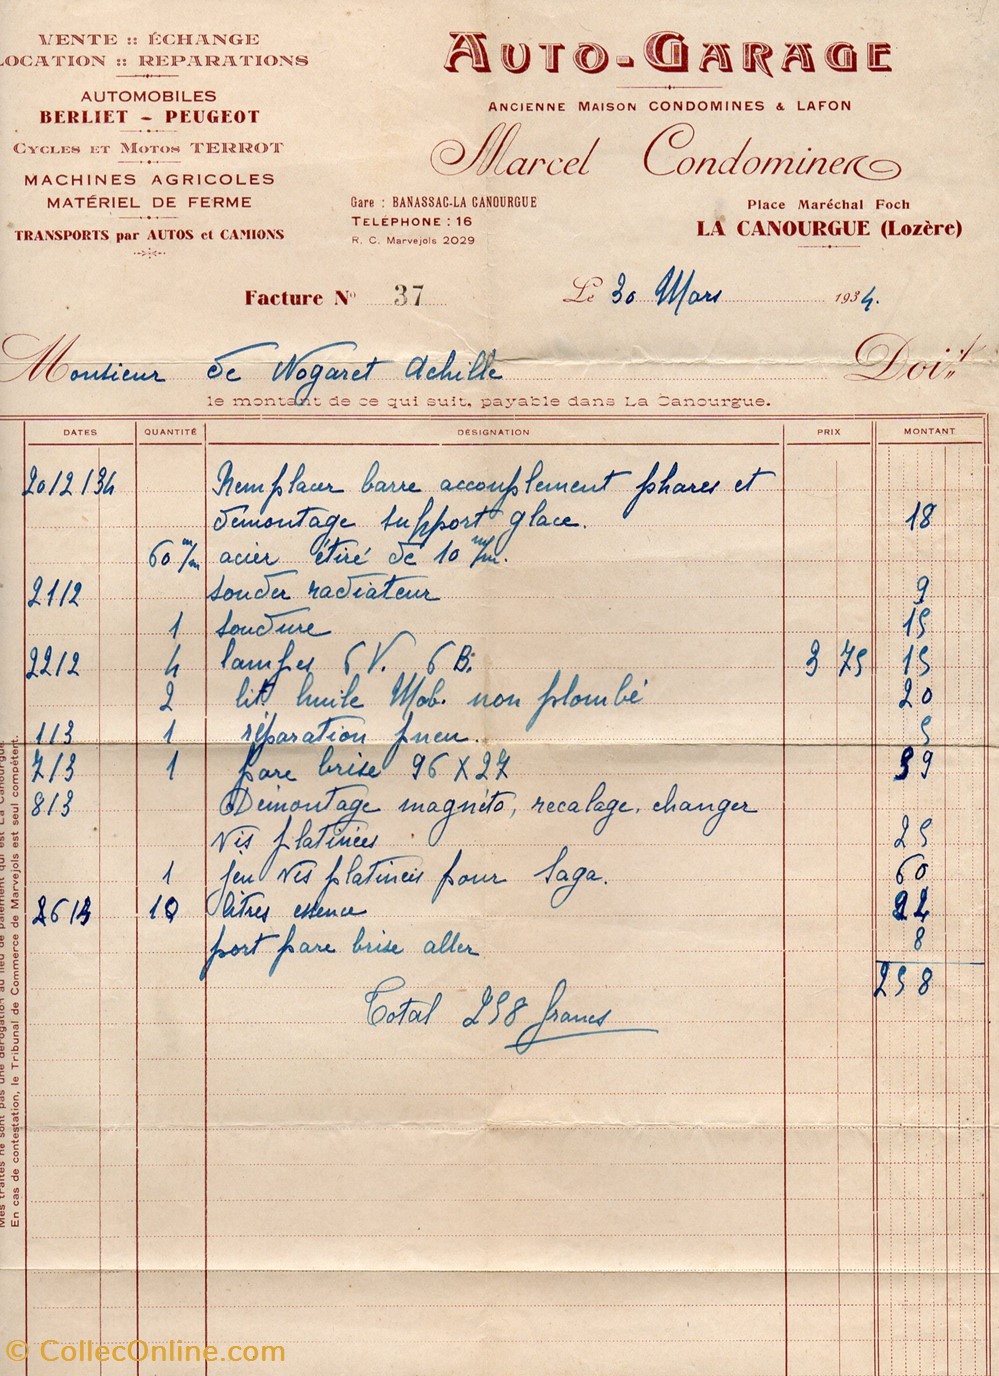 VENTE :: ÉCHANGE
LOCATION :: REPARATIONS
AUTOMOBILES
BERLIET - PEUGEOT
CYCLES ET MOTOS TERROT
MACHINES AGRICOLES
MATÉRIEL DE FERME
TRANSPORTS par AUTOS et CAMIONS
AUTO-GARAGE
ANCIENNE MAISON CONDOMINES & LAFON
Marcel Condomines
Gare : BANASSAC-LA CANOURGUE
TELÉPHONE : 16
R. C. Marvejols 2029
Place Maréchal Foch
LA CANOURGUE (Lozère)
Facture N° 37
Le 30 Mars 1934.
Monsieur de Nogaret Achille Doit
le montant de ce qui suit, payable dans La Canourgue.
DATES QUANTITÉ DÉSIGNATION PRIX MONTANT
20/2/34 Remplacer barre accouplement phares et
démontage support glace. 18
60 m/m acier étiré de 10 m/m.
21/2 souder radiateur 9
1 soudure 15
22/2 4 lampes 6 V. 6 B. 3 75 15
2 lit. huile Mob. non plombé 20
1/3 1 réparation pneu. 5
7/3 1 pare brise 96 x 27 59
8/3 Démontage magnéto, recalage, changer
vis platinées 25
1 jeu vis platinées pour Saga. 60
26/3 10 litres essence 24
port pare brise aller 8
258
Total 258 francs
Mes traites ne sont pas une dérogation au lieu de paiement qui est La Canourgue
En cas de contestation, le Tribunal de Commerce de Marvejols est seul compétent.
© CollecOnline.com